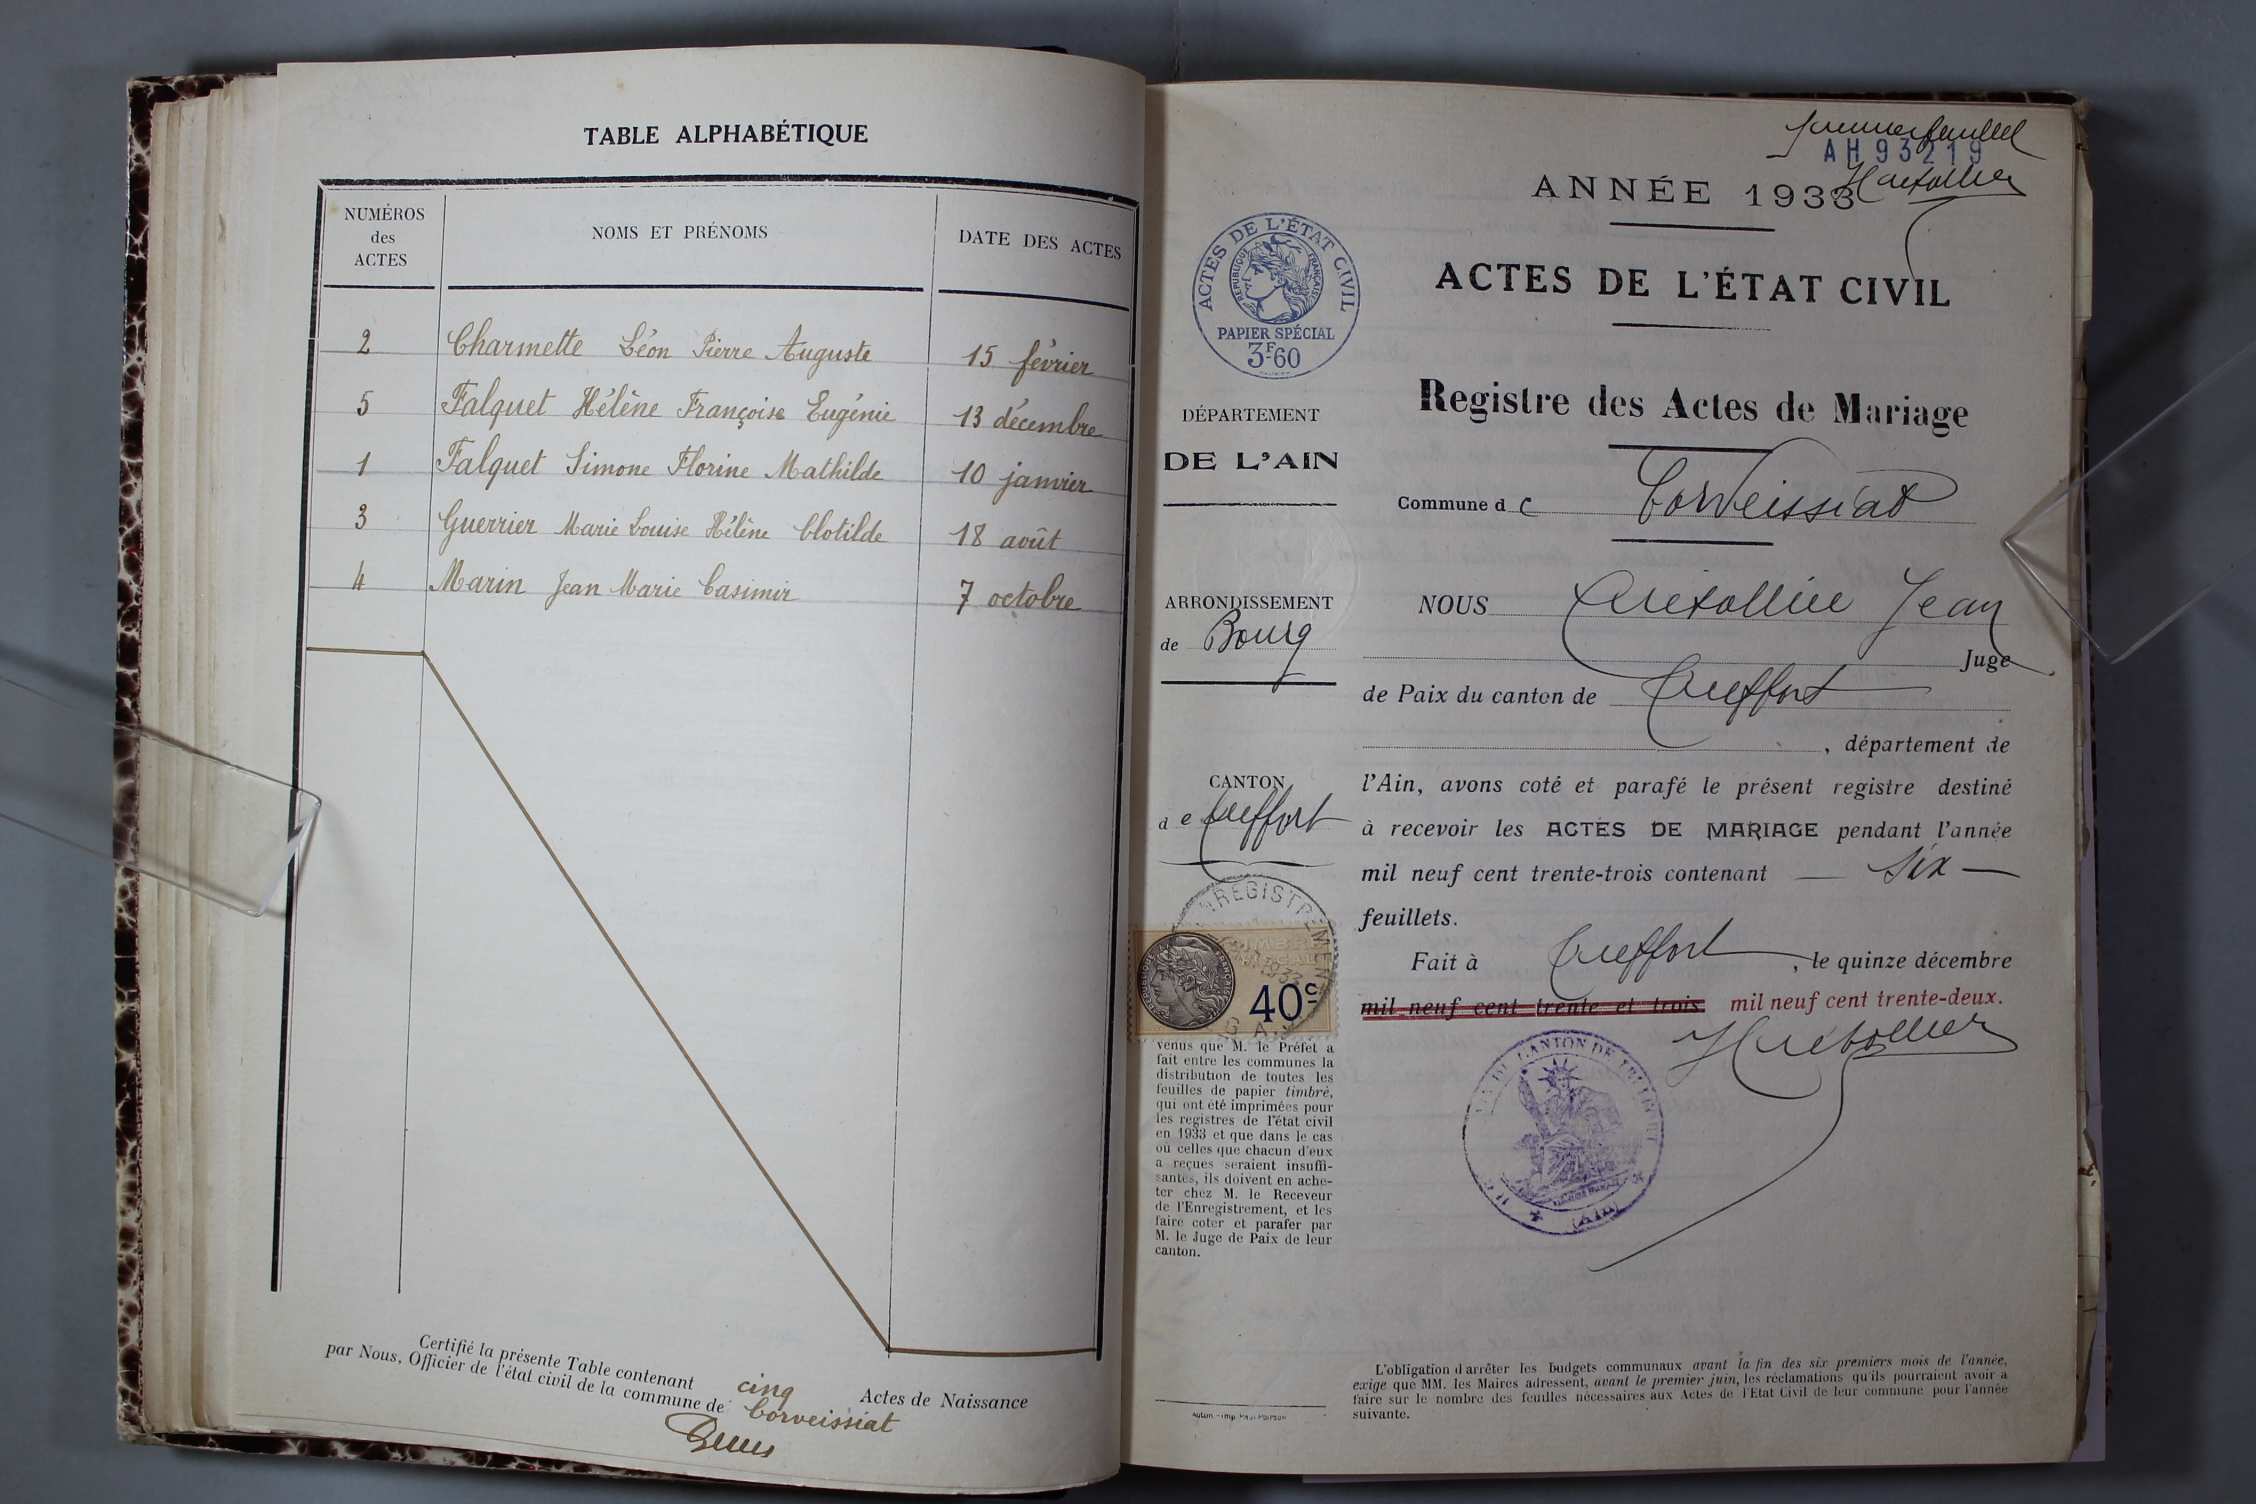 TABLE ALPHABÉTIQUE
NUMÉROS
des
ACTES
NOMS ET PRÉNOMS
DATE DES ACTES
2 Charmette Léon Pierre Auguste 15 février
5 Falquet Hélène Françoise Eugénie 13 décembre
1 Falquet Simone Florine Mathilde 10 janvier
3 Guerrier Marie Louise Hélène Clotilde 18 août
4 Marin Jean Marie Casimir 7 octobre
Certifié la présente Table contenant cinq Actes de Naissance
par Nous, Officier de l'état civil de la commune de Corveissiat
premier feuillet
AH 93219
ANNÉE 1933
ACTES DE L'ÉTAT CIVIL
Registre des Actes de Mariage
Commune de Corveissiat
NOUS Jean
Juge
de Paix du canton de Treffort
, département de
l'Ain, avons coté et parafé le présent registre destiné
à recevoir les ACTES DE MARIAGE pendant l'année
mil neuf cent trente-trois contenant — six —
feuillets.
Fait à Treffort, le quinze décembre
mil neuf cent trente et trois mil neuf cent trente-deux.
ACTES DE L'ÉTAT CIVIL
RÉPUBLIQUE FRANÇAISE
PAPIER SPÉCIAL
3F60
DÉPARTEMENT
DE L'AIN
ARRONDISSEMENT
de Bourg
CANTON
de Treffort
ENREGISTREMENT
TIMBRE
FISCAL
1933
40c
venus que M. le Préfet a
fait entre les communes la
distribution de toutes les
feuilles de papier timbré,
qui ont été imprimées pour
les registres de l'état civil
en 1933 et que dans le cas
où celles que chacun d'eux
a reçues seraient insuffi-
santes, ils doivent en ache-
ter chez M. le Receveur
de l'Enregistrement, et les
faire coter et parafer par
M. le Juge de Paix de leur
canton.
CANTON DE TREFFORT
(AIN)
Autun - Imp. Paul Poirson
L'obligation d'arrêter les budgets communaux avant la fin des six premiers mois de l'année,
exige que MM. les Maires adressent, avant le premier juin, les réclamations qu'ils pourraient avoir à
faire sur le nombre des feuilles nécessaires aux Actes de l'Etat Civil de leur commune pour l'année
suivante.